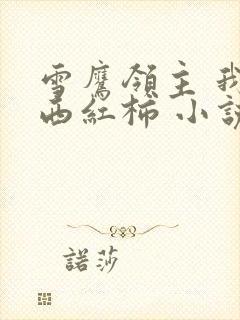 雪鷹領主 我
西紅柿 小說
諾莎